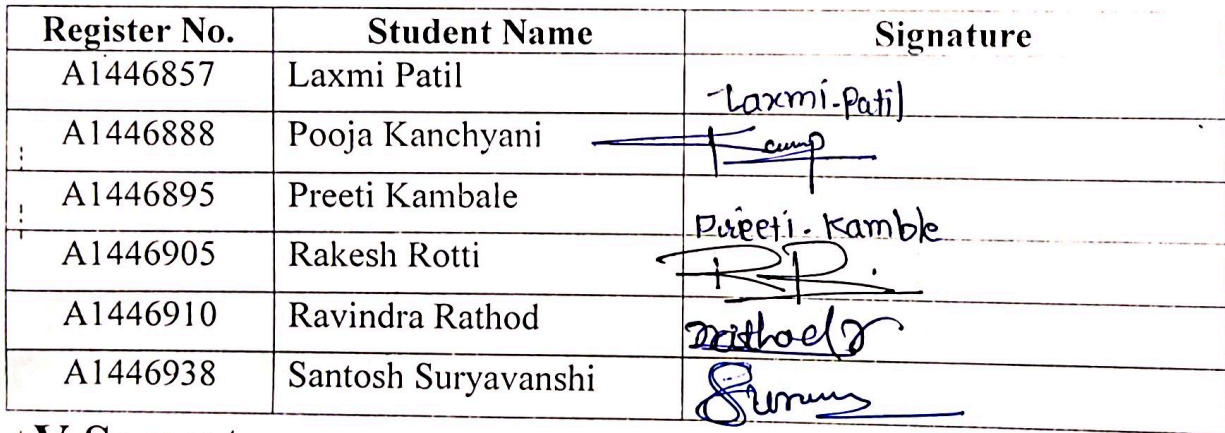 Register No. Student Name Signature
A1446857 Laxmi Patil Laxmi-Patil
A1446888 Pooja Kanchyani
A1446895 Preeti Kambale Preeti-Kamble
A1446905 Rakesh Rotti RR
A1446910 Ravindra Rathod
A1446938 Santosh Suryavanshi